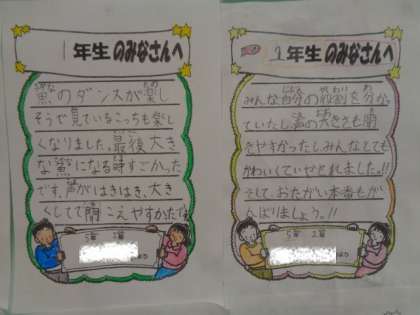 1年生のみなさんへ
魚のダンスが楽し
そうで見ているこっちも楽し
くなりました。最後大き
な魚になる時すごかった
です。声がはきはき、大き
くしてて聞こえやすかったです
年生のみなさんへ
みんな自分の役割を分かっ
ていたし声の大きさも聞
きやすかったしみんなとても
かわいくていやされました。!!
そして、おたがい本番もが
んばりましょう。!!